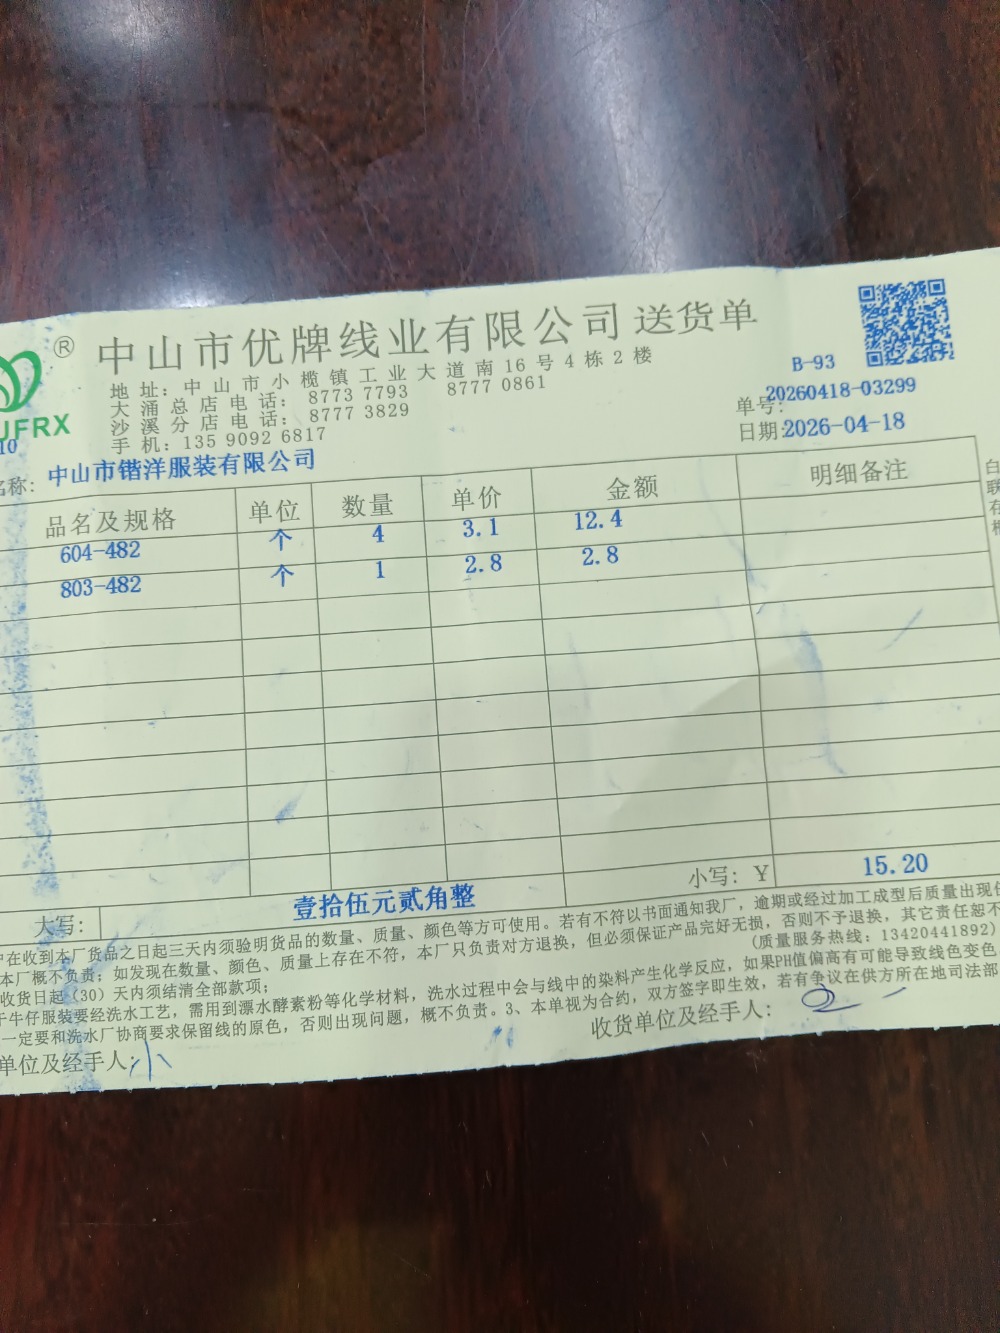 ®
UFRX
中山市优牌线业有限公司 送货单
地址: 中山市小榄镇工业大道南16号4栋2楼
大涌总店电话: 8773 7793 8777 0861
沙溪分店电话: 8777 3829
手机: 135 9092 6817
B-93
单号: 20260418-03299
日期: 2026-04-18
10
名称: 中山市锴洋服装有限公司
品名及规格 单位 数量 单价 金额 明细备注
604-482 个 4 3.1 12.4
803-482 个 1 2.8 2.8
白
联
存
大写: 壹拾伍元贰角整 小写: Y 15.20
户在收到本厂货品之日起三天内须验明货品的数量、质量、颜色等方可使用。若有不符以书面通知我厂，逾期或经过加工成型后质量出现任
本厂概不负责；如发现在数量、颜色、质量上存在不符，本厂只负责对方退换，但必须保证产品完好无损，否则不予退换，其它责任恕不
收货日起（30）天内须结清全部款项； (质量服务热线: 13420441892)
于牛仔服装要经洗水工艺，需用到漂水酵素粉等化学材料，洗水过程中会与线中的染料产生化学反应，如果PH值偏高有可能导致线色变色
一定要和洗水厂协商要求保留线的原色，否则出现问题，概不负责。3、本单视为合约，双方签字即生效，若有争议在供方所在地司法部
单位及经手人: 小 收货单位及经手人: